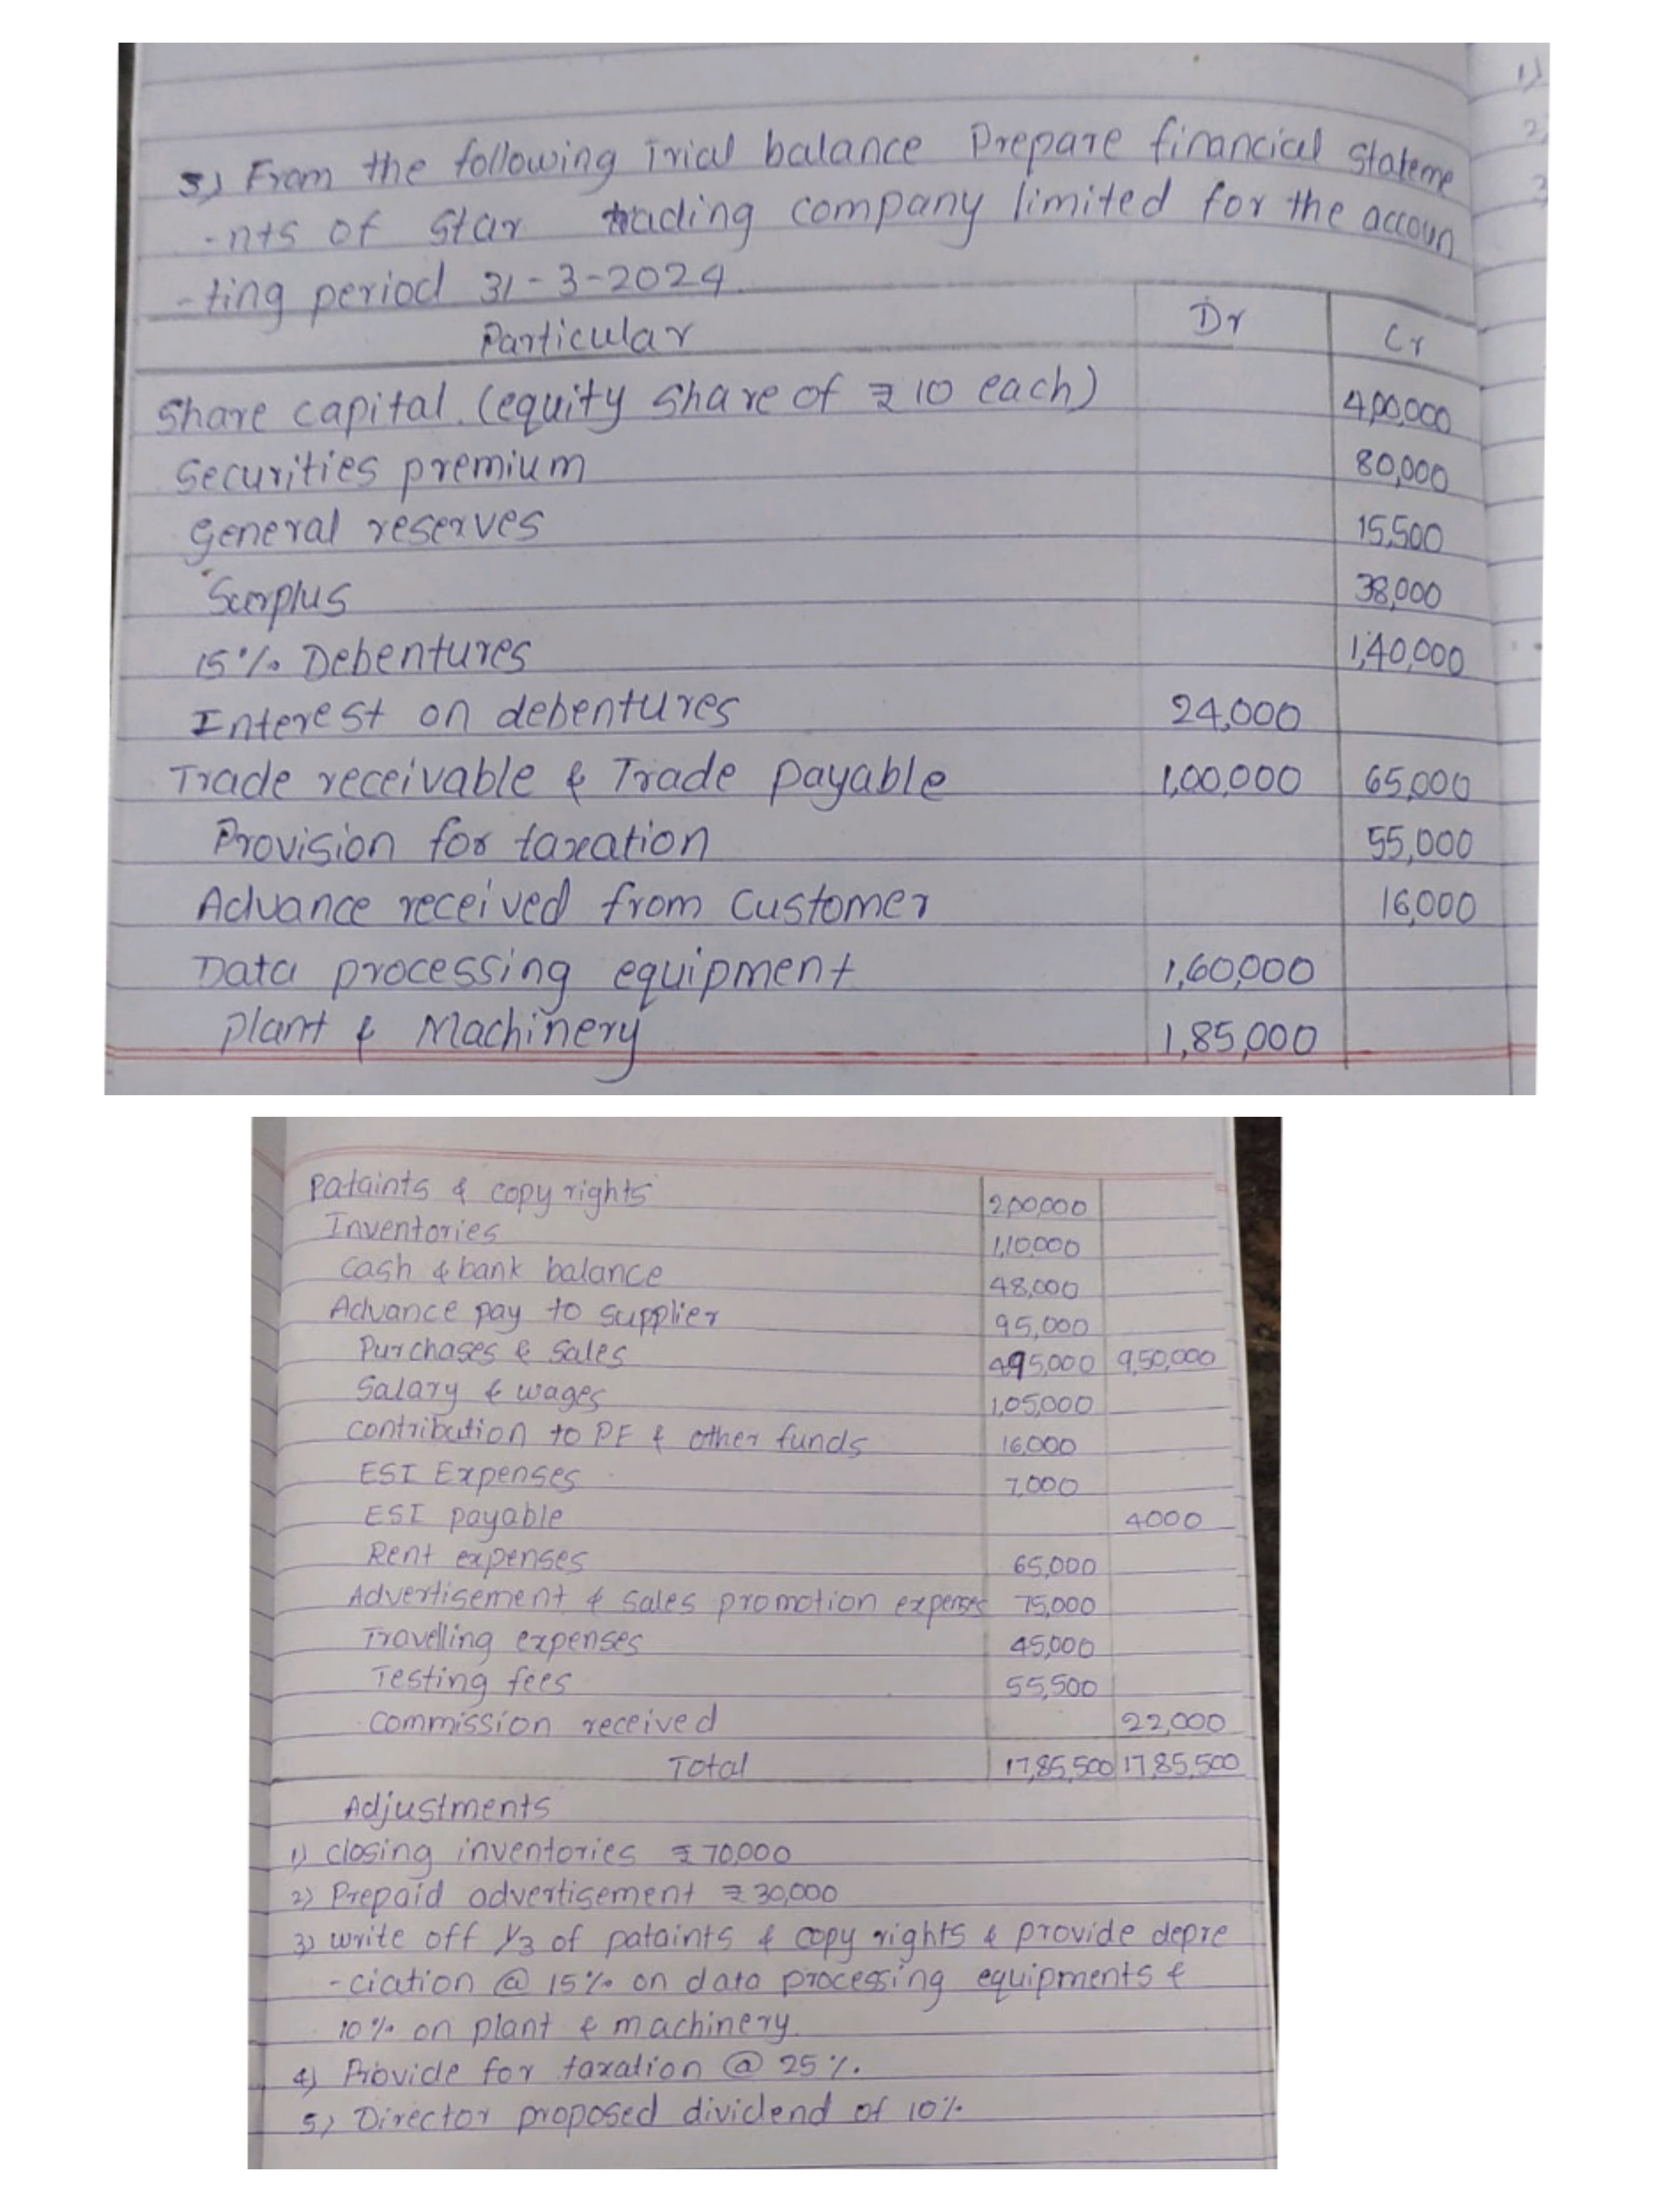 3) From the following Trial balance Prepare financial Stateme
-nts of Star trading company limited for the accoun
-ting period 31-3-2024.
Particular Dr Cr
Share capital (equity Share of ₹10 each) 4,00,000
Securities premium 80,000
General reserves 15,500
Surplus 38,000
15% Debentures 1,40,000
Interest on debentures 24,000
Trade receivable & Trade payable 1,00,000 65,000
Provision for taxation 55,000
Advance received from customer 16,000
Data processing equipment 1,60,000
Plant & Machinery 1,85,000
Pataints & copy rights 2,00,000
Inventories 1,10,000
Cash & bank balance 48,000
Advance pay to supplier 95,000
Purchases & Sales 495,000 9,50,000
Salary & wages 1,05,000
contribution to PF & other funds 16,000
ESI Expenses 7,000
ESI payable 4000
Rent expenses 65,000
Advertisement & sales promotion expenses 75,000
Travelling expenses 45,000
Testing fees 55,500
commission received 22,000
Total 17,85,500 17,85,500
Adjustments
1) closing inventories ₹70,000
2) Prepaid advertisement ₹30,000
3) write off 1/3 of pataints & copy rights & provide depre
-ciation @ 15% on data processing equipments &
10% on plant & machinery.
4) Provide for taxation @ 25%.
5) Director proposed dividend of 10%
1)
2)